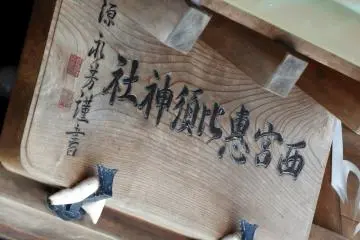 西宮惠比須神社
源永芳謹書